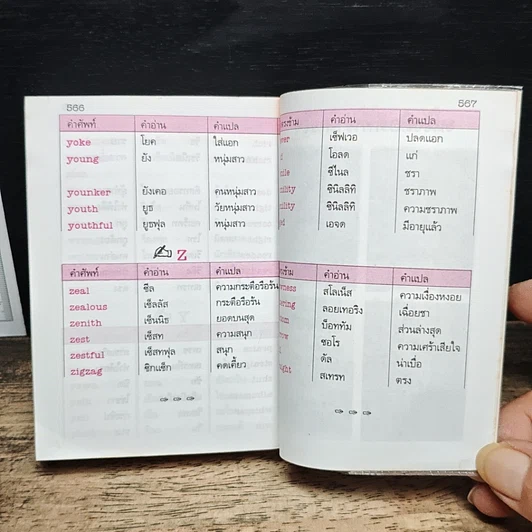 566
คำศัพท์ คำอ่าน คำแปล
yoke โยค ใส่แอก
young ยัง หนุ่มสาว
younker ยังเคอ คนหนุ่มสาว
youth ยูธ วัยหนุ่มสาว
youthful ยูธฟุล หนุ่มสาว
Z
คำศัพท์ คำอ่าน คำแปล
zeal ซีล ความกระตือรือร้น
zealous เซ็ลลัส กระตือรือร้น
zenith เซ็นนิธ ยอดบนสุด
zest เซ็สท ความสนุก
zestful เซ็สทฟุล สนุก
zigzag ซิกแซ็ก คดเคี้ยว
567
คำอ่าน คำแปล
เซ็ฟเวอ ปลดแอก
โอลด แก่
ซีไนล ชรา
ซินิลลิทิ ชราภาพ
ซินิลลิทิ ความชราภาพ
เอจด มีอายุแล้ว
คำอ่าน คำแปล
สโลเน็ส ความเงื่องหงอย
ลอยเทอริง เฉื่อยชา
บ็อททัม ส่วนล่างสุด
ซอโร ความเศร้าเสียใจ
ดัล น่าเบื่อ
สเทรท ตรง